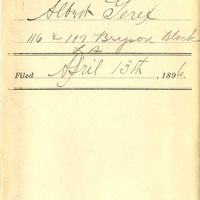 Albert Gerex
116 & 117 Bryson Block
L A
Filed April 13th, 1896.